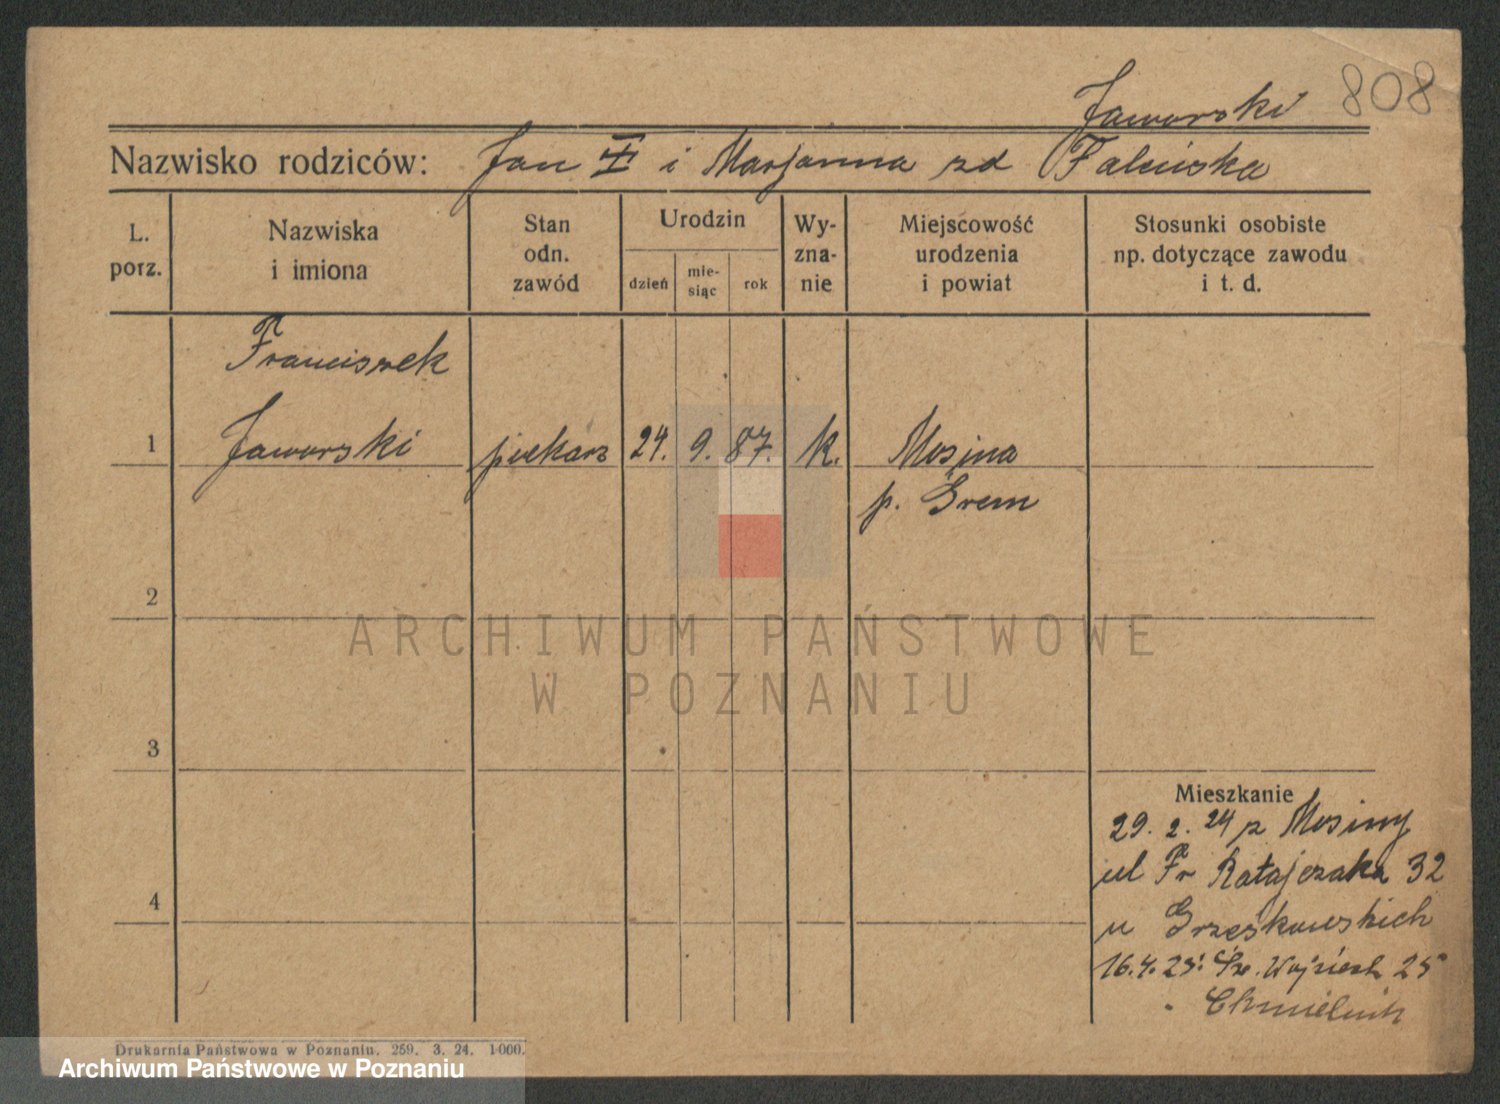 808
Jaworski
Nazwisko rodziców: Jan † i Marjanna zd Faleńska
L. porz.
Nazwiska i imiona
Stan odn. zawód
Urodzin
dzień
mie-siąc
rok
Wy-zna-nie
Miejscowość urodzenia i powiat
Stosunki osobiste np. dotyczące zawodu i t. d.
Franciszek
1 Jaworski piekarz 24. 9. 87. k. Mosina
p. Śrem
2
ARCHIWUM PAŃSTWOWE
W POZNANIU
3
Mieszkanie
29. 2. 24 z Mosiny
ul Fr Ratajczaka 32
4
u Grześkowskich
16.4.25: Św. Wojciech 25
Chmielnik
Drukarnia Państwowa w Poznaniu. 259. 3. 24. 1000.
Archiwum Państwowe w Poznaniu